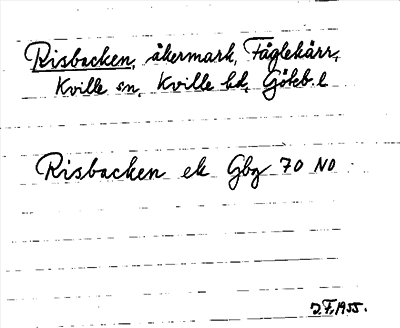 Risbacken, åkermark, Fåglekärr,
Kville sn, Kville hd, Göteb. l
Risbacken ek Gbg 70 NO
J.F. 1955.